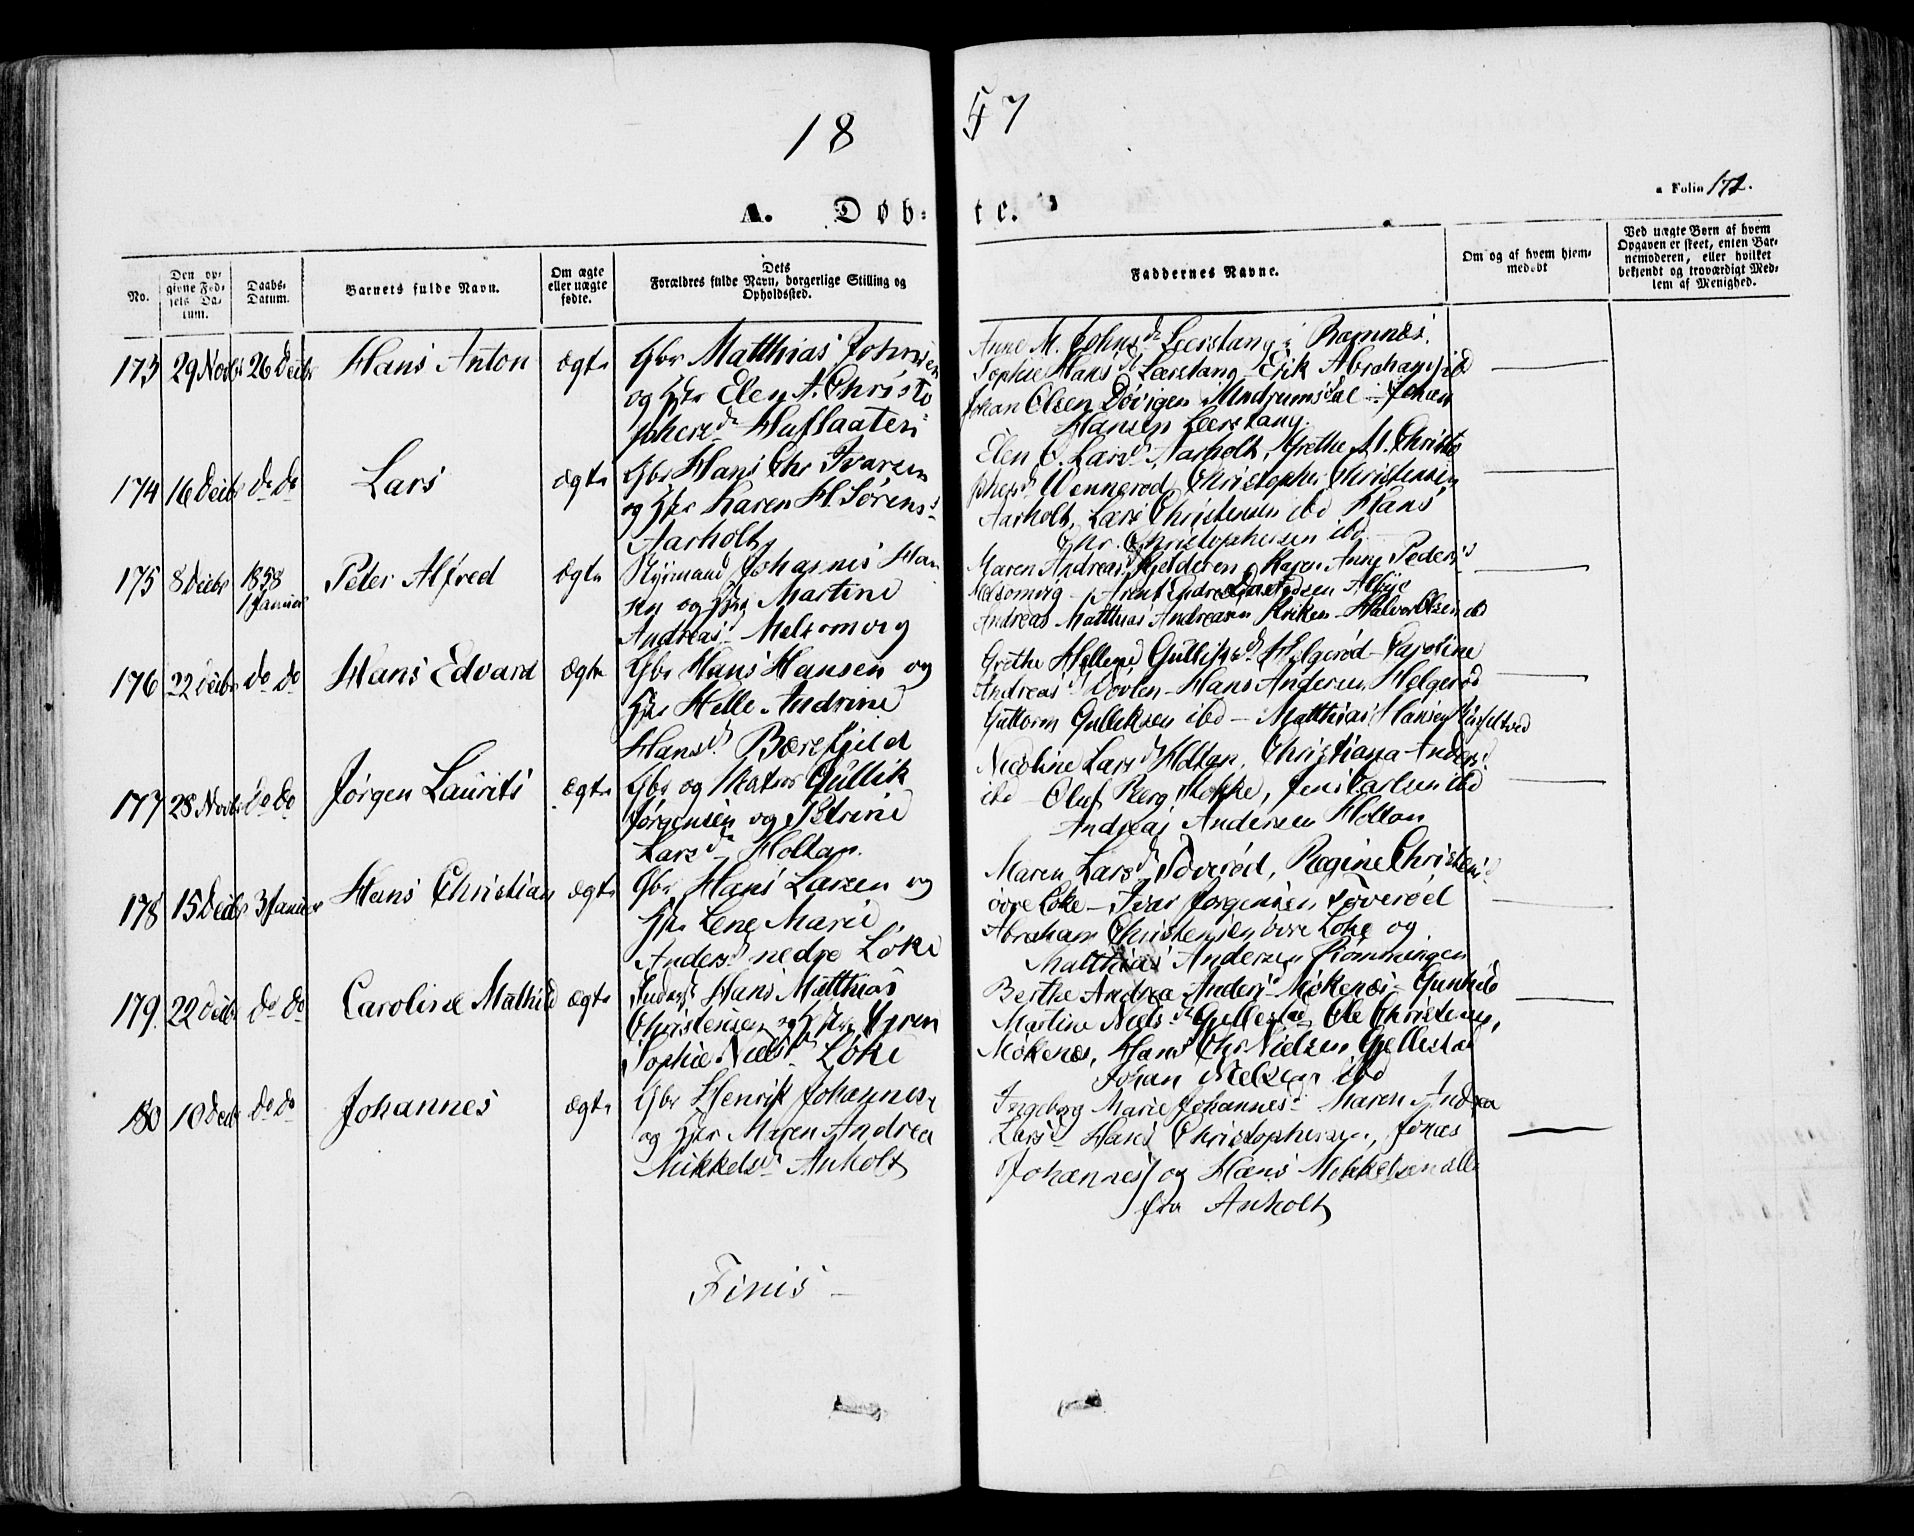 18 57
A. Døb- te.
a Folio 172.
No.
Den opgivne Fødsels Datum.
Daabs-Datum.
Barnets fulde Navn.
Om ægte eller uægte fødte.
Dets Forældres fulde Navn, borgerlige Stilling og Opholdssted.
Faddernes Navne.
Om og af hvem hjemmedøbt
Ved uægte Børn af hvem Opgaven er skeet, enten Barnemoderen, eller hvilket bekjendt og troværdigt Medlem af Menighed.
173 29 Novbr 26 Decbr Hans Anton ægte Gbr Matthias Johnsen
og Hr Elen A. Christo
phersd.
Anne M. Johnsd Leerstang i Ramnæs.
Sophie Hansd Leerstang Erik Abrahams ibd
Johan Olsen Johan
Hansen Leerstang.
174 16 Decbr do do Lars ægte Gbr Hans Chr Ivarsen
og Hr Karen H. Sørens
Aarholt
Elen O. Larsd Aarholt, Grethe M. Christo
phersd Wennerød Christopher Christensen
Aarholt, Lars Christensen ibd Hans
Chr. Christophersen ibd
175 8 Decbr 1858 1 Januar Peter Alfred ægte Styrmand Johannes Han
sen og Martine
Andreasd Melsomvig
Maren Andreasd Karen Anne Peders
Melsomvig
Andreas Matthias Andreasen Halvor Olsen ibd
176 22 Decbr do do Hans Edvard ægte Gbr Hans Hansen og
Hr Helle Andrine
Hansd
Grethe Hellene Gulliksd Helgerød Caroline
Andreasd Hans Andersen Helgerød
Guttorm Gulliksen ibd — Matthias Hansen
177 28 Novbr do do Jørgen Laurits ægte Gbr og Gullik
Jørgensen og Petrine
Larsd Holtan.
Nicoline Larsd Holtan, Christiana Anders
ibd — Oluf Berg Jens Carlsen ibd
Andreas Andersen Holtan
178 15 Decbr 3 Januar Hans Christian ægte Gbr Hans Larsen og
Hr Lene Marie
Andersd nedre Løke
Maren Larsd Regine Christens
øvre Løke — Ivar Jørgensen
Abraham Christensen øvre Løke og
Matthias Andersen
179. 22 Decbr do do Caroline Mathild ægte Hans Matthias
Christensen og
Sophie Nielsd Løke
Berthe Andrea Anders Møkenæs Gunhild
Martine Nielsd Gjellestad Ole Christens,
Møkenæs, Hans Chr Nielsen Gjellestad
Johan Nielsen ibd
180 10 Decbr do do Johannes ægte Gbr Henrik Johannes
og Hr Maren Andrea
Mikkelsd Anholt
Ingeborg Marie Johannesd Maren Andrea
Larsd Hans Christophersen, Jonas
Johannes og Hans Mikkelsen alle
fra Anholt
Finis